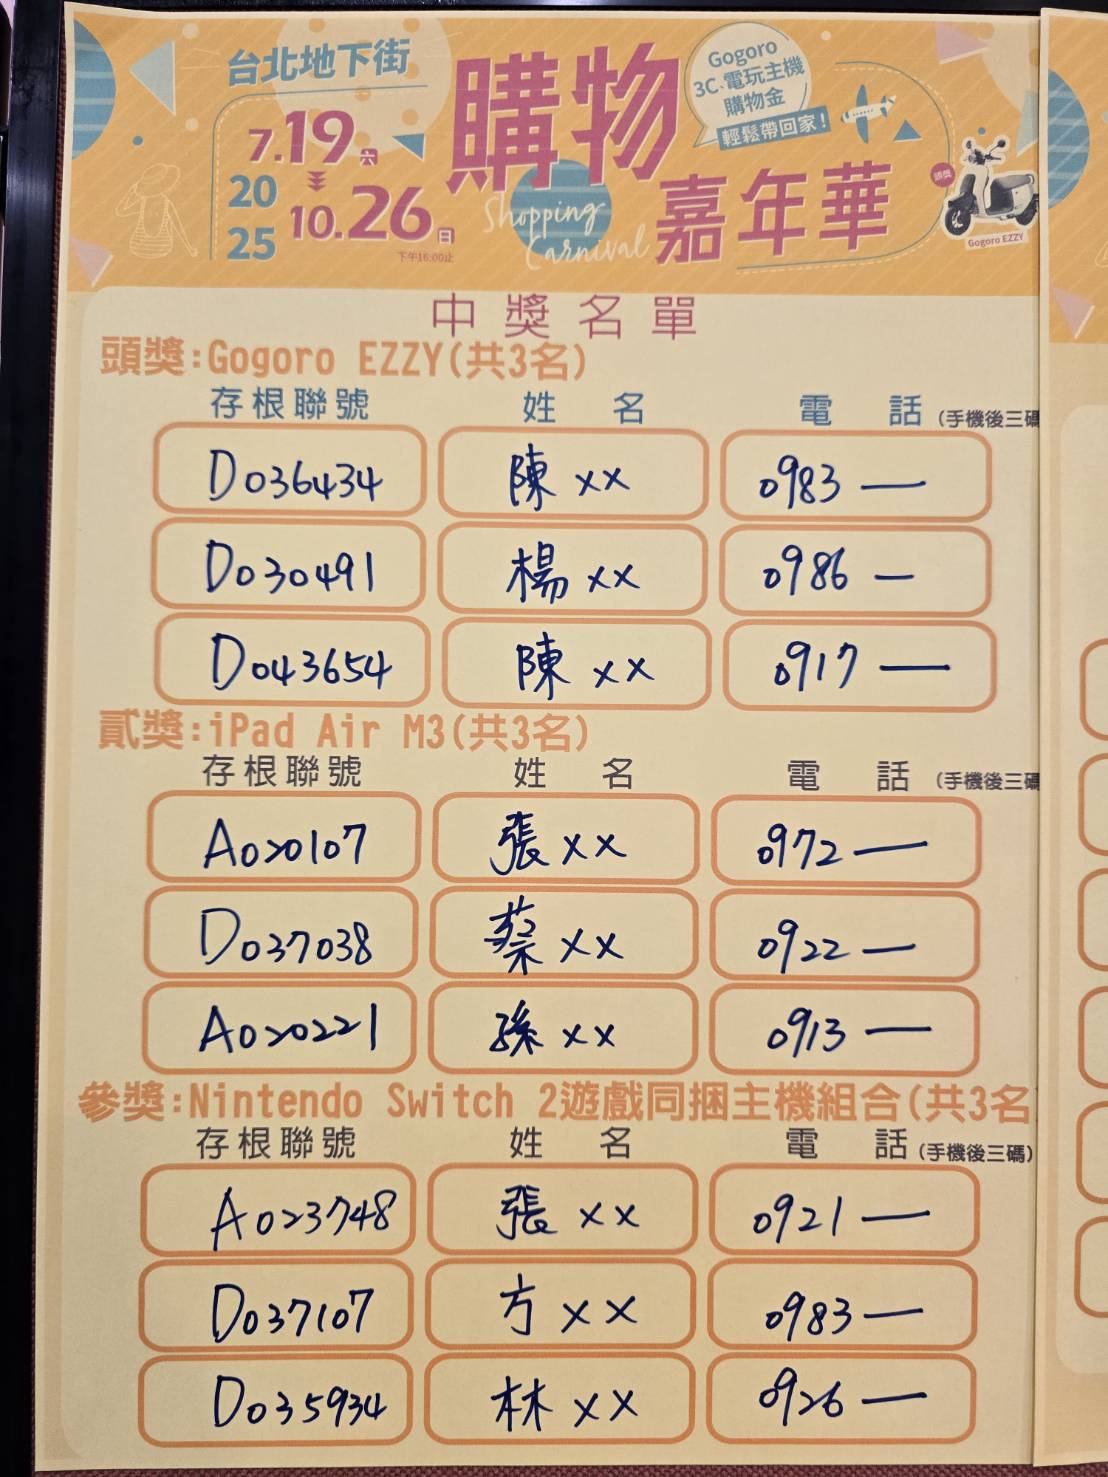 台北地下街
7.19六
2025
10.26日
下午16:00止
購物
嘉年華
Shopping
Carnival
Gogoro
3C、電玩主機
購物金
輕鬆帶回家!
頭獎
Gogoro EZZY
中獎名單
頭獎:Gogoro EZZY(共3名)
存根聯號 姓名 電話(手機後三碼
D036434 陳×× 0983—
D030491 楊×× 0986—
D043654 陳×× 0917—
貳獎:iPad Air M3(共3名)
存根聯號 姓名 電話(手機後三碼
A020107 張×× 0972—
D037038 蔡×× 0922—
A020221 孫×× 0913—
參獎:Nintendo Switch 2遊戲同捆主機組合(共3名
存根聯號 姓名 電話(手機後三碼)
A023748 張×× 0921—
D037107 方×× 0983—
D035934 林×× 0926—